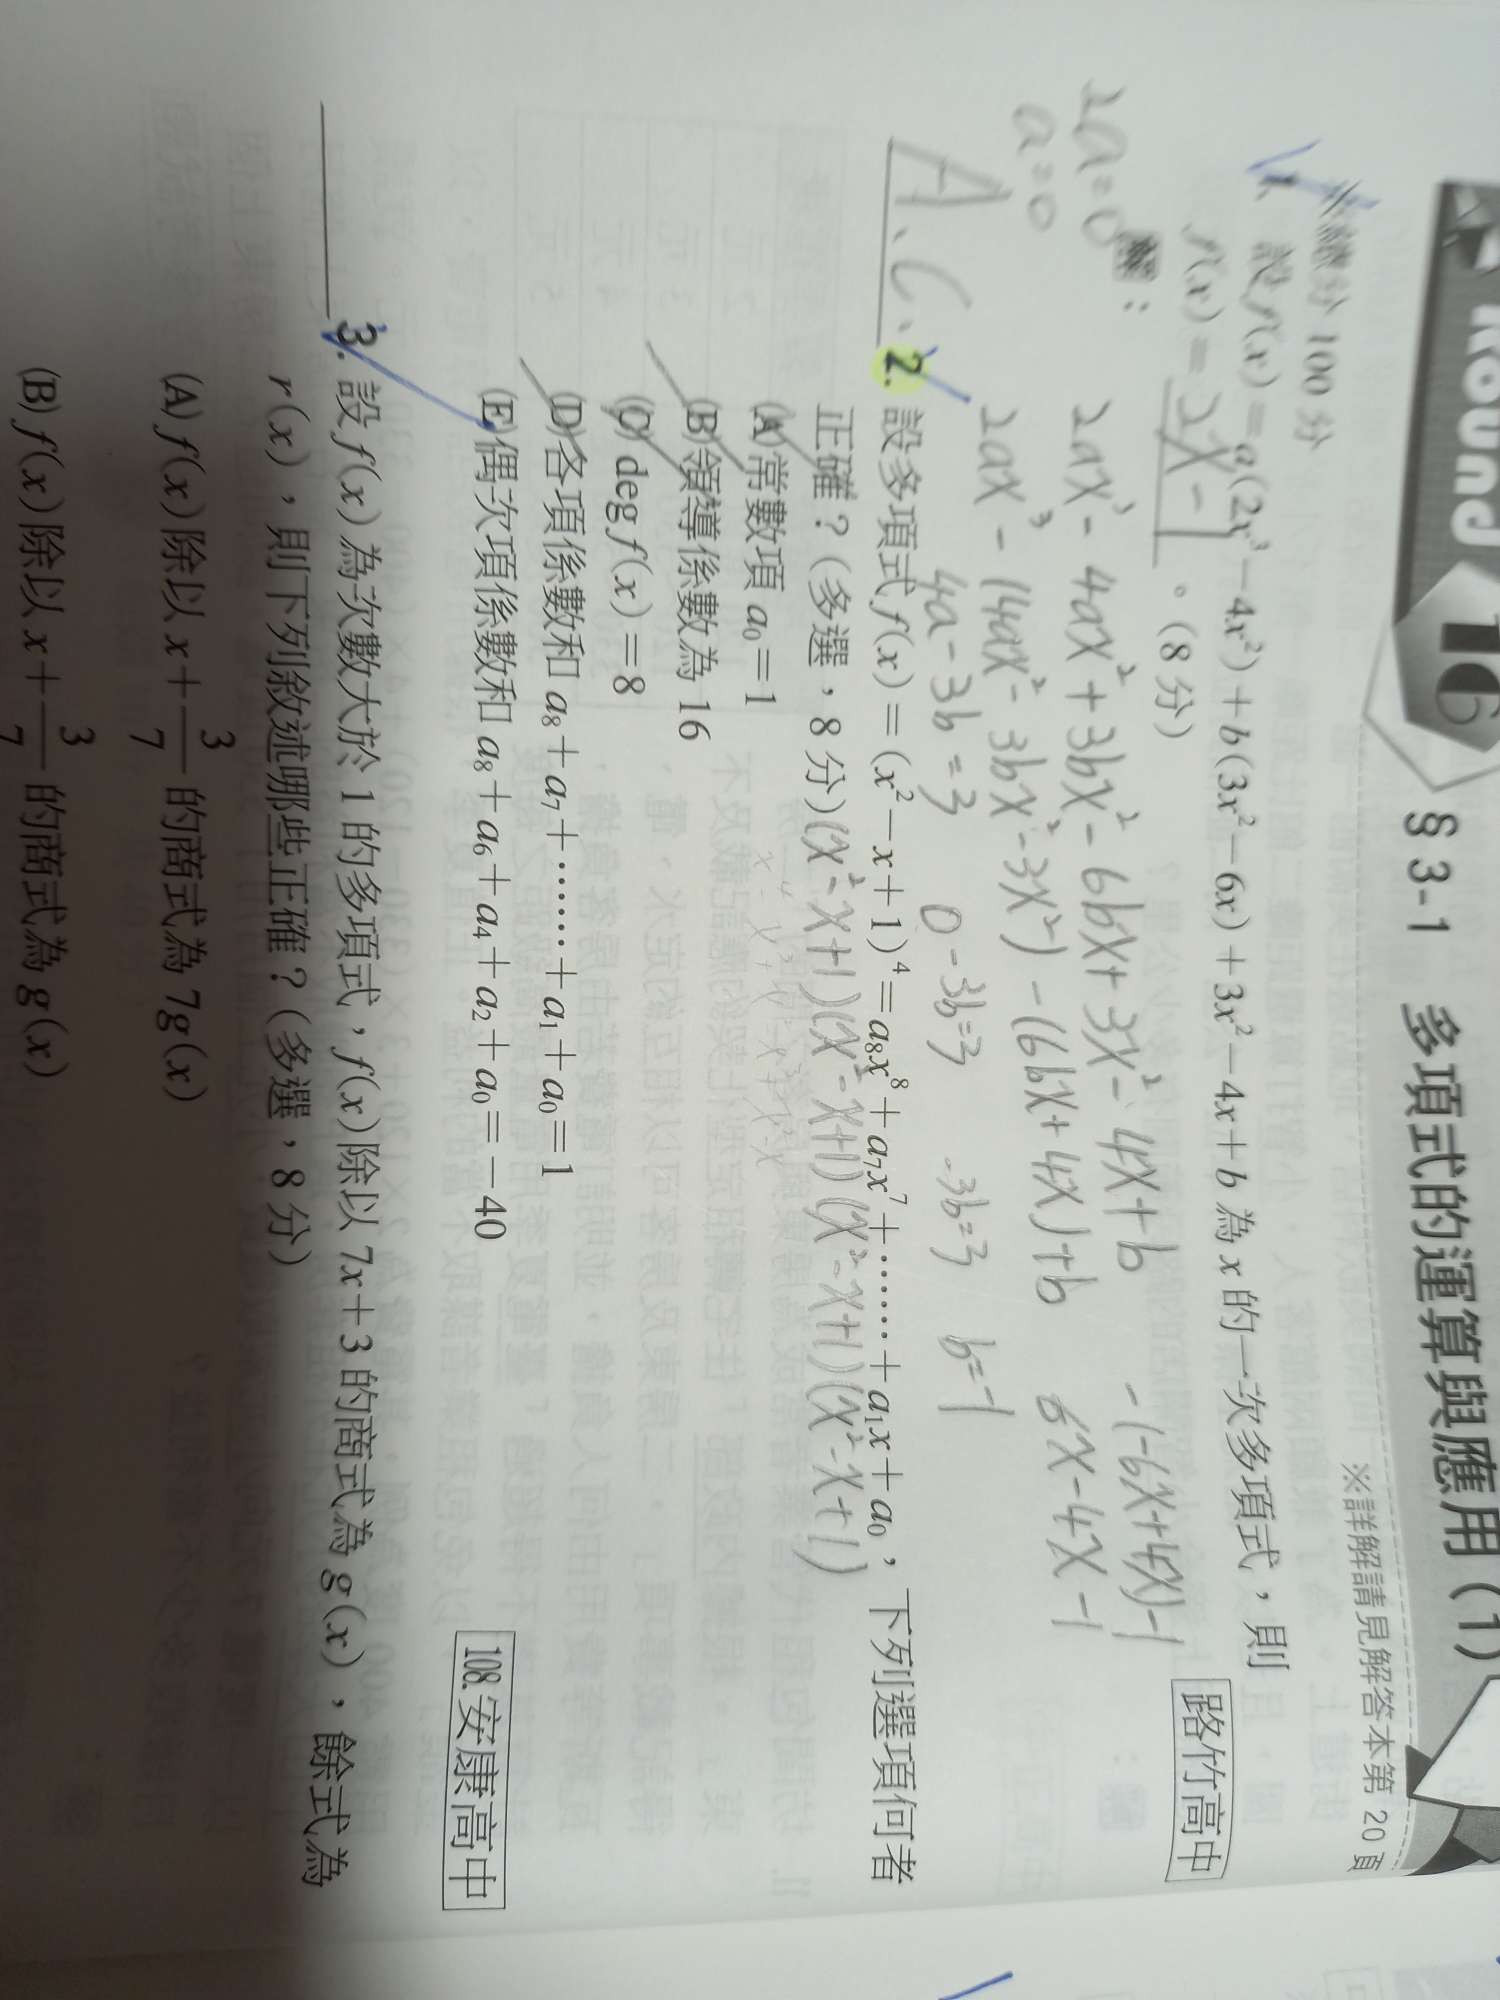 Round 16 §3-1 多項式的運算與應用(1)
※總分100分
※詳解請見解答本第20頁
1. 設f(x)=a(2x³-4x²)+b(3x²-6x)+3x²-4x+b為x的一次多項式,則
f(x)=2x-1。(8分)
路竹高中
解:
2a=0
a=0
2ax³-4ax²+3bx²-6bx+3x²-4x+b
2ax³-(4ax²-3bx²-3x²)-(6bx+4x)+b
4a-3b=3 0-3b=3 -3b=3 b=-1
-(-6x+4x)-1
6x-4x-1
A、C、
2. 設多項式f(x)=(x²-x+1)⁴=a₈x⁸+a₇x⁷+……+a₁x+a₀,下列選項何者
正確?(多選,8分)(x²-x+1)(x²-x+1)(x²-x+1)(x²-x+1)
(A)常數項a₀=1
(B)領導係數為16
(C)deg f(x)=8
(D)各項係數和a₈+a₇+……+a₁+a₀=1
(E)偶次項係數和a₈+a₆+a₄+a₂+a₀=-40
108.安康高中
3. 設f(x)為次數大於1的多項式,f(x)除以7x+3的商式為g(x),餘式為
r(x),則下列敘述哪些正確?(多選,8分)
(A)f(x)除以x+3/7的商式為7g(x)
(B)f(x)除以x+3/7的商式為g(x)